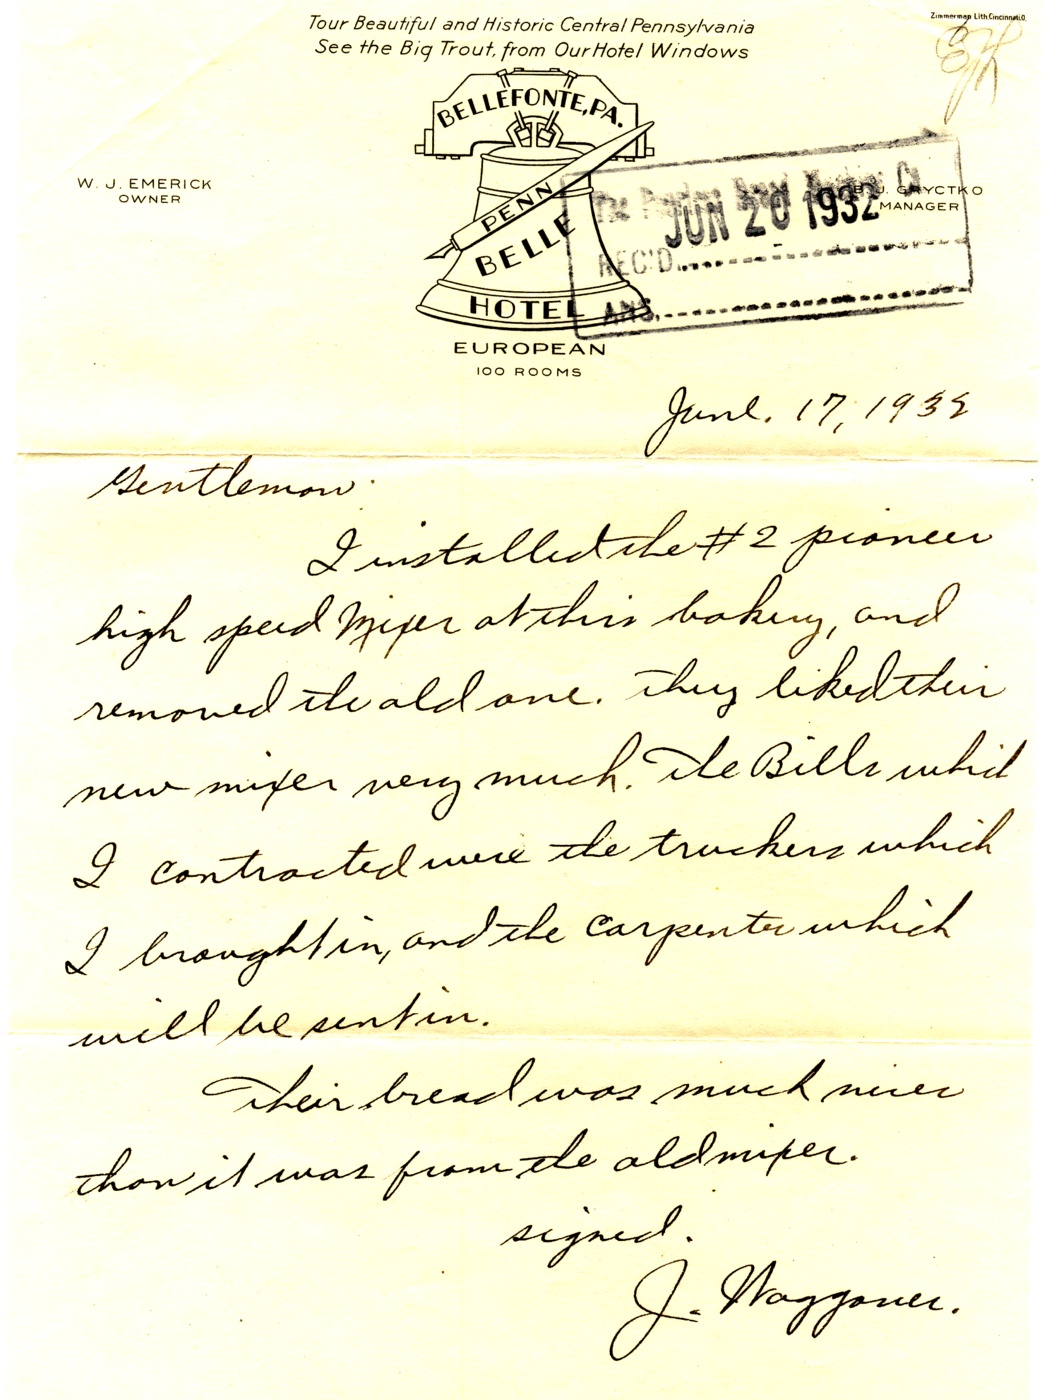 Zimmerman Lith. Cincinnati, O.
Tour Beautiful and Historic Central Pennsylvania
See the Big Trout, from Our Hotel Windows
BELLEFONTE, PA.
W. J. EMERICK
OWNER
J. GRYCTKO
MANAGER
PENN
BELLE
HOTEL
EUROPEAN
100 ROOMS
The Co
JUN 20 1932
REC'D
ANS.
June. 17, 1932
Gentlemen
I installed the #2 pioneer
high speed Mixer at this bakery, and
removed the old one. They liked their
new mixer very much. The Bills which
I contracted were the truckers which
I brought in, and the carpenter which
will be sent in.
Their bread was much nicer
than it was from the old mixer.
signed.
J. Waggoner.